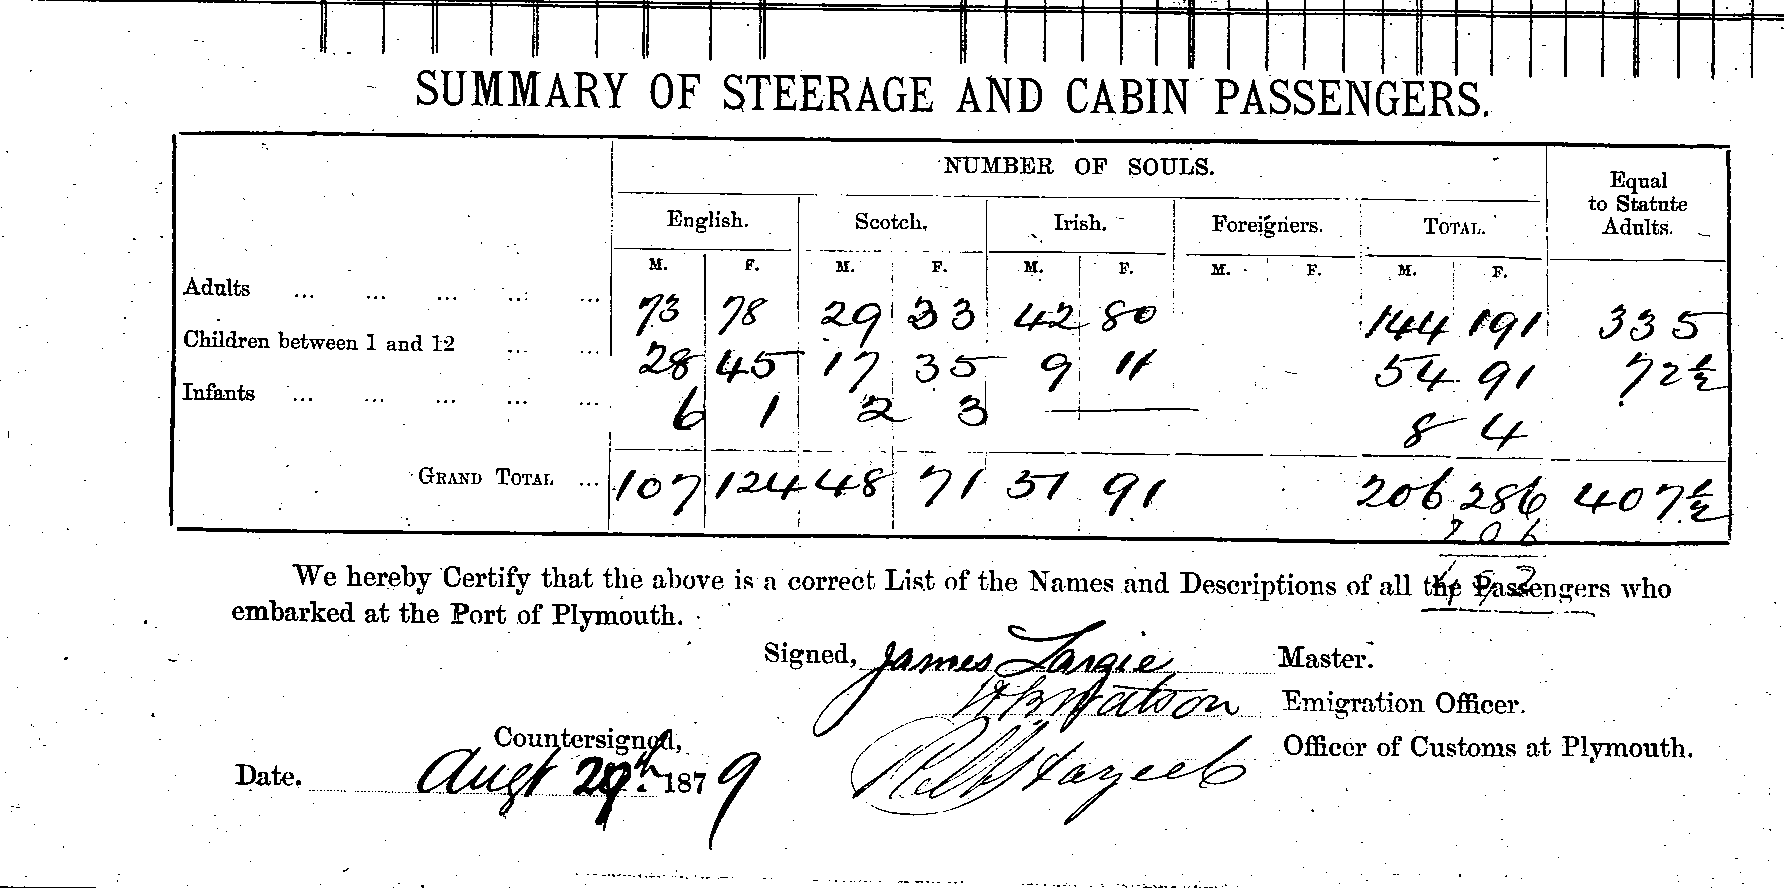 SUMMARY OF STEERAGE AND CABIN PASSENGERS.
NUMBER OF SOULS.
Equal to Statute Adults.
English. Scotch. Irish. Foreigners. TOTAL.
M. F. M. F. M. F. M. F. M. F.
Adults ... ... ... ... ... 73 78 29 33 42 80 144 191 335
Children between 1 and 12 ... ... 28 45 17 35 9 11 54 91 72½
Infants ... ... ... ... ... 6 1 2 3 — 8 4
GRAND TOTAL ... 107 124 48 71 51 91 206 286 407½
206
492
We hereby Certify that the above is a correct List of the Names and Descriptions of all the Passengers who
embarked at the Port of Plymouth.
Signed, James Largie Master.
Watson Emigration Officer.
Countersigned,
Officer of Customs at Plymouth.
Date. Augt 29th. 1879